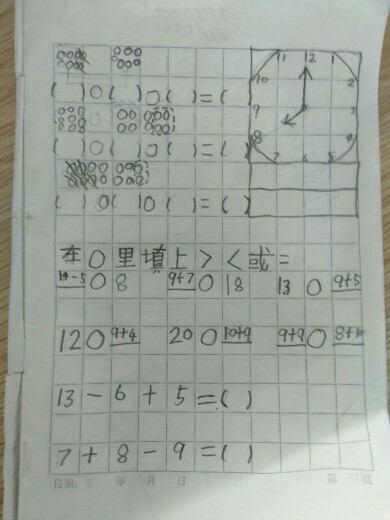 ( )○( )○( )=( )
( )○( )○( )=( )
( )○( )○( )=( )
11 12 2 10 9 8 7 6 5
在○里填上><或=
14-5○8 9+7○18 13○9+5
12○9+4 20○10+9 9+9○8+10
13-6+5=( )
7+8-9=( )
日期: 年 月 日 第 页